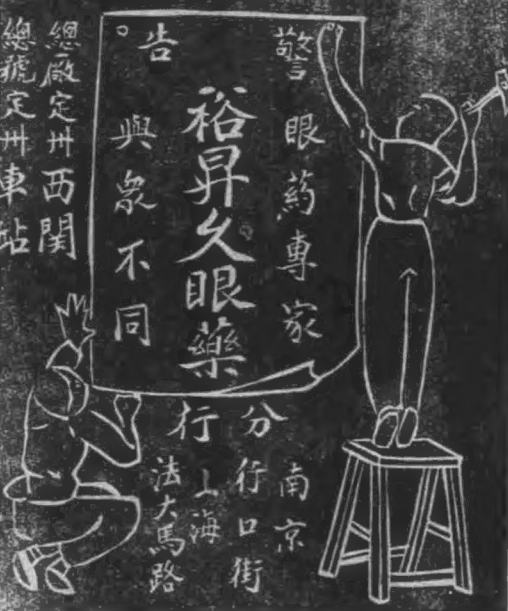 警告
眼葯專家
裕昇久眼藥
與衆不同
分行
南京
行口街
上海
法大馬路
總廠定州西関
總號定州車站